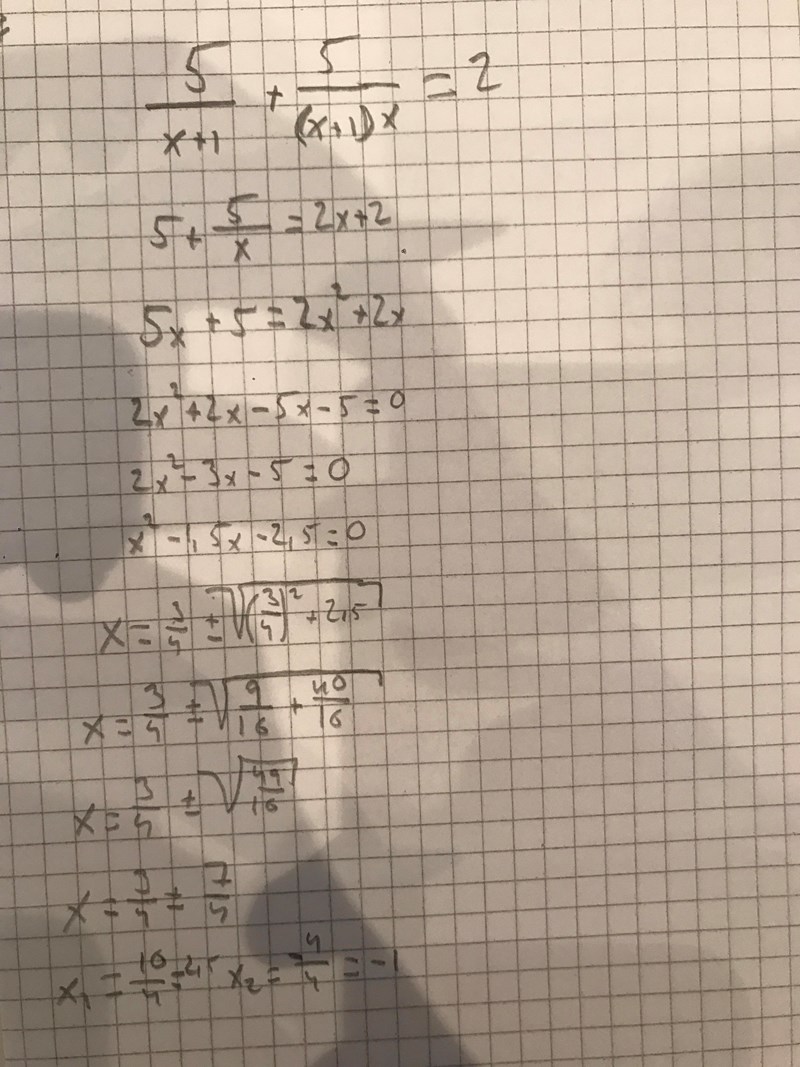 5/(x+1) + 5/((x+1)x) = 2
5 + 5/x = 2x+2
5x + 5 = 2x² + 2x
2x² + 2x - 5x - 5 = 0
2x² - 3x - 5 = 0
x² - 1,5x - 2,5 = 0
x = 3/4 ± √((3/4)² + 2,5)
x = 3/4 ± √(9/16 + 40/16)
x = 3/4 ± √(49/16)
x = 3/4 ± 7/4
x₁ = 10/4 = 2,5 x₂ = -4/4 = -1